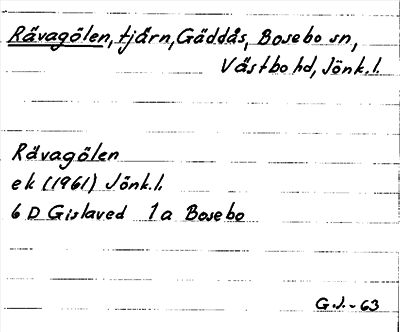 Rävagölen, tjärn, Gäddås, Bosebo sn,
Västbo hd, Jönk.l.
Rävagölen
ek (1961) Jönk.l.
6 D Gislaved 1a Bosebo
G.J.-63